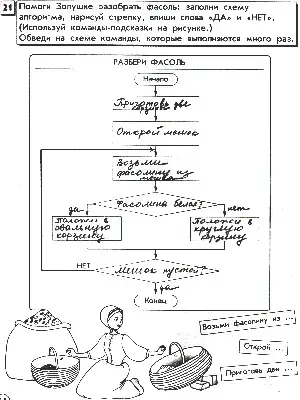 21 Помоги Золушке разобрать фасоль: заполни схему
алгоритма, нарисуй стрелку, впиши слова «ДА» и «НЕТ».
(Используй команды-подсказки на рисунке.)
Обведи на схеме команды, которые выполняются много раз.
РАЗБЕРИ ФАСОЛЬ
Начало
Приготовь две
корзины
Открой мешок
Возьми
фасолину из
мешка
Фасолина белая?
да
нет
Положи в
овальную
корзину
Положи в
круглую
корзину
НЕТ
Мешок пустой?
да
Конец
Возьми фасолину из ...
Открой ...
Приготовь две ...